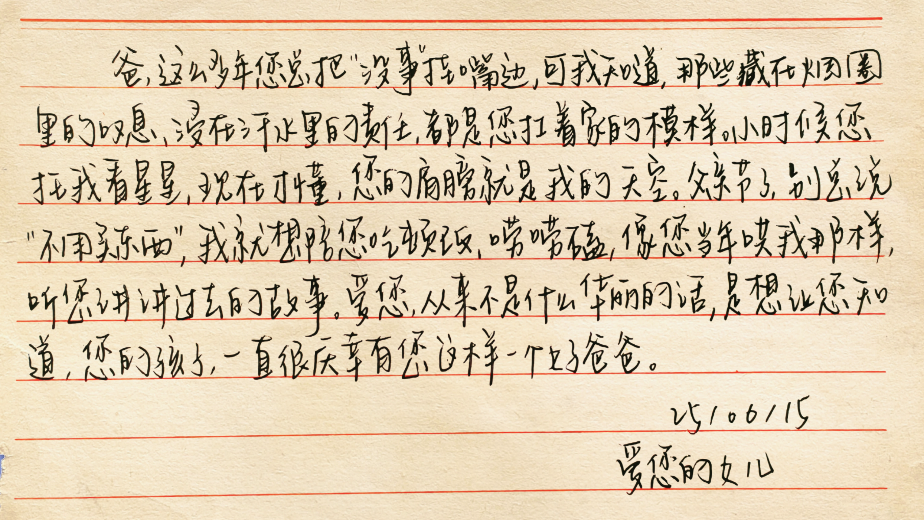 爸,这么多年您总把"没事"挂嘴边,可我知道,那些藏在烟圈
里的叹息、浸在汗水里的责任,都是您扛着家的模样。小时候您
托我看星星,现在才懂,您的肩膀就是我的天空。父亲节了,别总说
"不用买东西",我就想陪您吃顿饭,唠唠嗑,像您当年哄我那样,
听您讲讲过去的故事。爱您,从来不是什么华丽的话,是想让您知
道,您的孩子,一直很庆幸有您这样一个好爸爸。
25/06/15
爱您的女儿